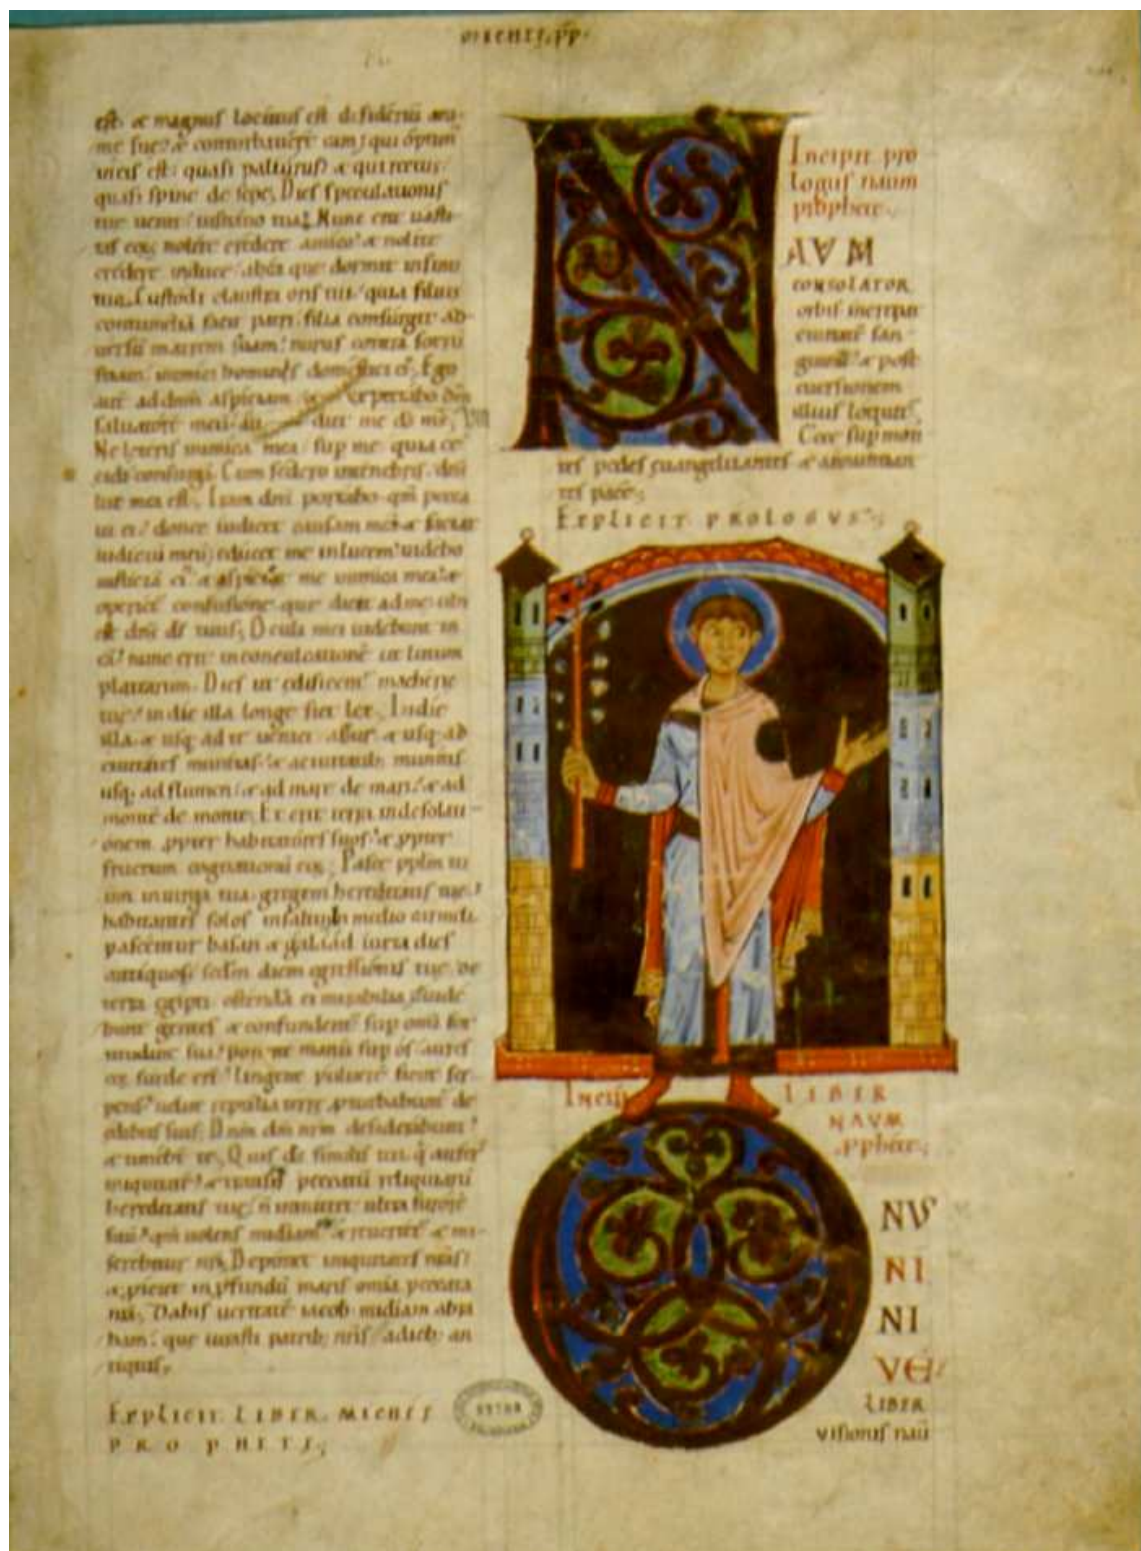 est & magnus locutus est desideriū ani
me sue & conturbauer̄t eam; qui optim̄
in eis est quasi paliurus & qui rectus
quasi spine de sepe. Dies speculationis
tue uenit uisitatio tua; Nunc erit uasti
tas eoꝝ nolite credere amico & nolite
credere in duce. ab ea que dormit in sinu
tuo. custodi claustra oris tui quia filius
contumeliā facit patri. filia consurget ad
uersū matrem suam. nurus contra socrū
suam. inimici hominis domestici ei. Ego
autē ad dn̄m aspiciam expectabo dm̄
saluatorē meū me ds̄ ms̄;
Ne leteris inimica mea sup me quia ce
cidi consurgā. Cum sedero in tenebris dn̄s
lux mea est. Iram dn̄i portabo qm̄ pecca
ui ei. donec iudicet causam meā & faciat
iudiciū meū; educet me in lucem uidebo
iusticiā ei & aspiciet me inimica mea &
operiet confusione que dicit ad me ubi
est dn̄s ds̄ tuus; Oculi mei uidebunt in
eā nunc erit in conculcationē ut lutum
platearum. Dies ut edificent macherie
tue in die illa longe fiet lex. In die
illa & usq ad te ueniet assur & usq ad
ciuitates munitas & a ciuitatib munitis
usq ad flumen & ad mare de mari & ad
monte de monte. Et erit terra in desolati
onem ppter habitatores suos & ppter
fructum cogitationū eoꝝ; Pasce pplm tu
um in uirga tua gregem hereditatis tue
habitantes solos in saltu in medio carmeli.
pascentur basan & galaad iuxta dies
antiquos scdm diem egressionis tue de
terra egipti ostendā ei mirabilia uide
bunt gentes & confundent sup omi for
titudine sua ponent manū sup os aures
eoꝝ surde ert lingent puluerē sicut ser
pens uelut reptilia terre pturbabunt de
edibus suis; Dnm dm nrm desiderabunt
& timebt te. Quis ds similis tui q aufers
iniquitatē & transis peccatū reliquiarū
hereditatis tue; ñ inmittet ultra furorē
suū qm̄ uolens misdiam ē reuertet & mi
serebitur nri. Deponet iniquitates nras
& piciet in pfundū maris omia peccata
nra; Dabis ueritatē iacob misdiam abra
ham. que iurasti patrib nris a dieb an
tiquis.
Explicit. LIBER. MICHEE
PROPHETE;
Incipit pro
logus naum
prophete.
NAVM
CONSOLATOR
orbis increpat
ciuitatē san
guinū & post
euersionem
illius loquit
Ecce sup mon
tes pedes euangelizantis & annuntian
tis pacē;
Explicit PROLOGVS;
Incip LIBER
NAVM
pphete;
ONVS
NI
NI
VE
LIBER
uisionis naū